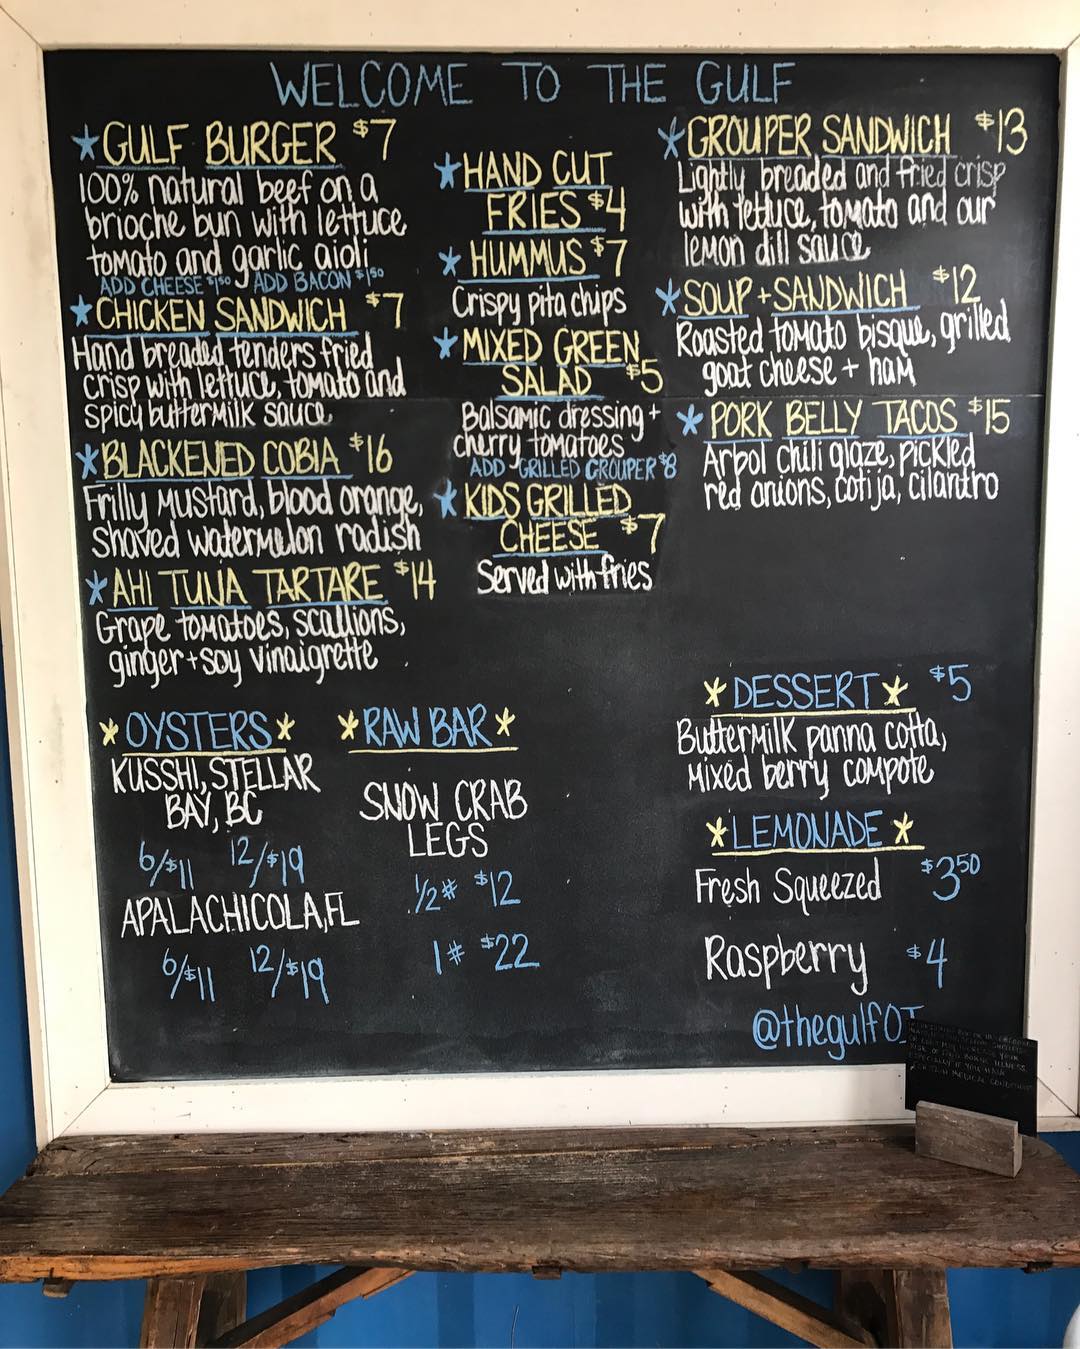 WELCOME TO THE GULF
*GULF BURGER $7
100% natural beef on a
brioche bun with lettuce
tomato and garlic aioli
ADD CHEESE $1.50 ADD BACON $1.50
*CHICKEN SANDWICH $7
Hand breaded tenders fried
crisp with lettuce, tomato and
spicy buttermilk sauce
*BLACKENED COBIA $16
Frilly Mustard, blood orange,
shaved watermelon radish
*AHI TUNA TARTARE $14
Grape tomatoes, scallions,
ginger+soy vinaigrette
*HAND CUT
FRIES $4
*HUMMUS $7
Crispy pita chips
*MIXED GREEN
SALAD $5
Balsamic dressing +
cherry tomatoes
ADD GRILLED GROUPER $8
*KIDS GRILLED
CHEESE $7
Served with fries
*GROUPER SANDWICH $13
Lightly breaded and fried crisp
with lettuce, tomato and our
lemon dill sauce
*SOUP + SANDWICH $12
Roasted tomato bisque, grilled
goat cheese + ham
*PORK BELLY TACOS $15
Arbol chili glaze, pickled
red onions, cotija, cilantro
*OYSTERS*
KUSSHI, STELLAR
BAY, BC
6/$11 12/$19
APALACHICOLA, FL
6/$11 12/$19
*RAW BAR*
SNOW CRAB
LEGS
1/2# $12
1# $22
*DESSERT* $5
Buttermilk panna cotta,
Mixed berry compote
*LEMONADE*
Fresh Squeezed $3.50
Raspberry $4
@thegulfOI
YOUR
RISK OF FOOD BORNE ILLNESS,
ESPECIALLY IF YOU HAVE
CERTAIN MEDICAL CONDITIONS